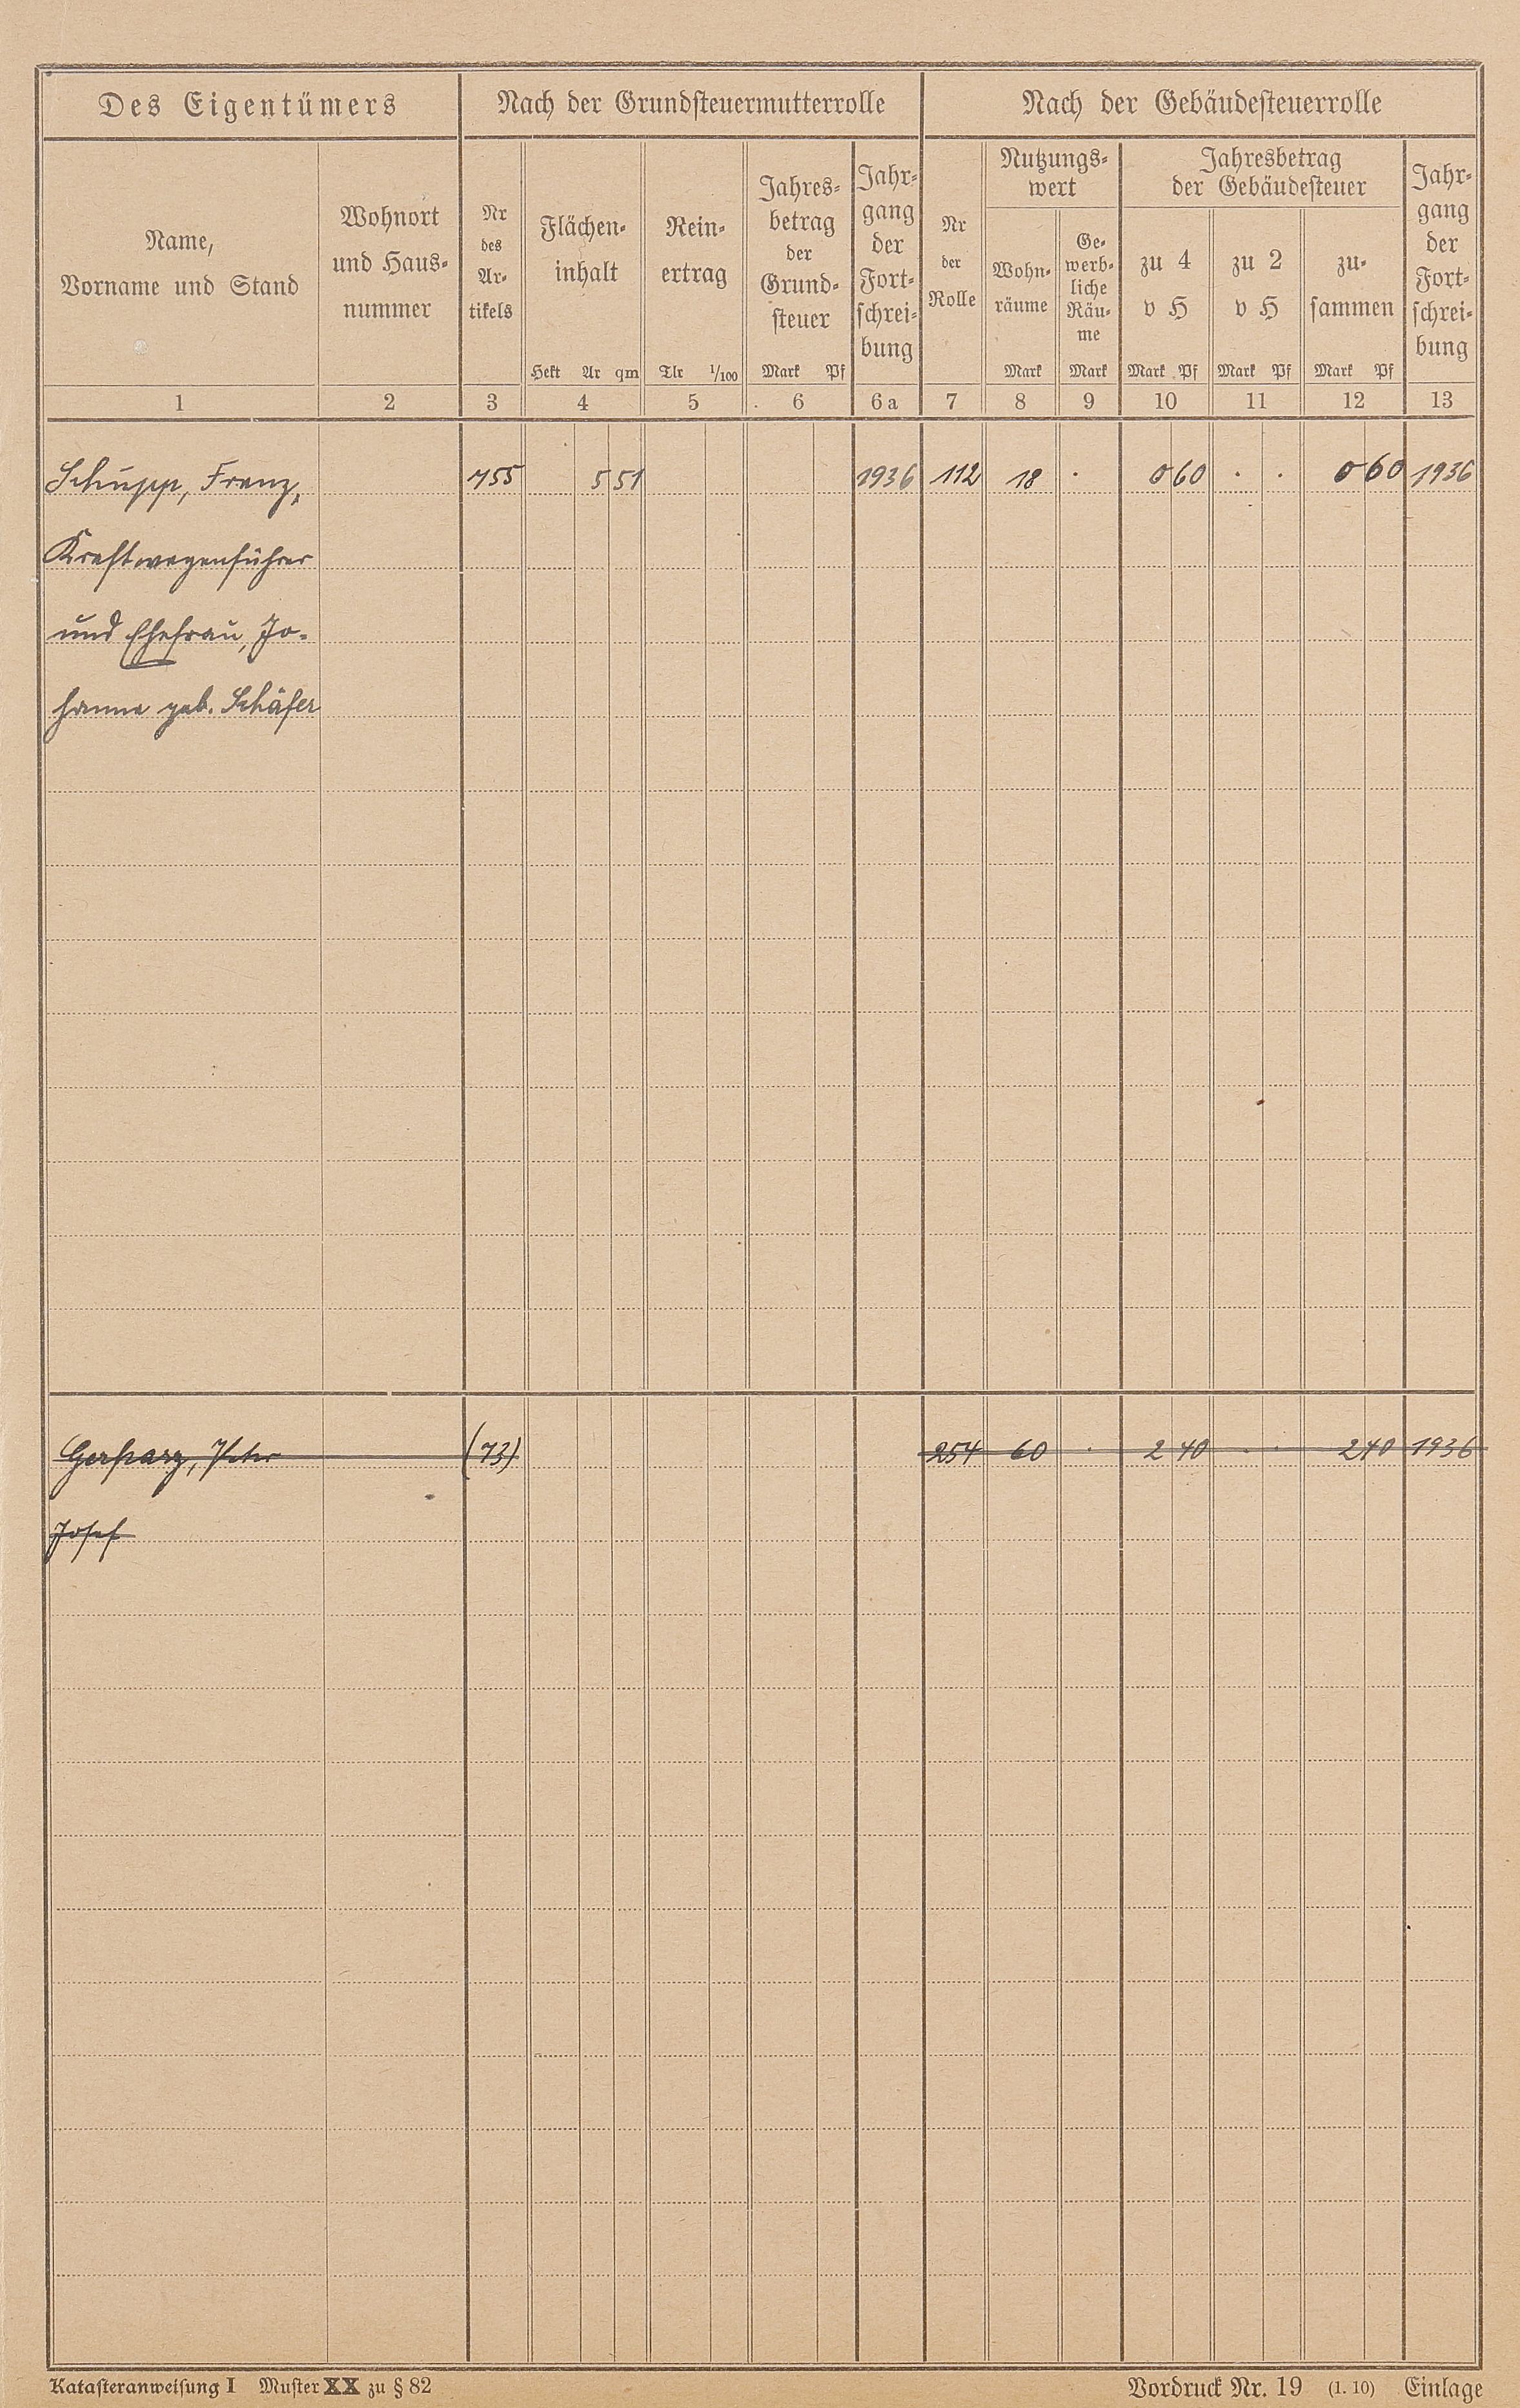 Des Eigentümers Nach der Grundsteuermutterrolle Nach der Gebäudesteuerrolle
Name,
Vorname und Stand
Wohnort
und Haus-
nummer
Nr
des
Ar-
tikels
Flächen-
inhalt
Hekt Ar qm
Rein-
ertrag
Tlr 1/100
Jahres-
betrag
der
Grund-
steuer
Mark Pf
Jahr-
gang
der
Fort-
schrei-
bung
Nr
der
Rolle
Nutzungs-
wert
Wohn-
räume
Mark
Ge-
werb-
liche
Räu-
me
Mark
Jahresbetrag
der Gebäudesteuer
zu 4
v H
Mark Pf
zu 2
v H
Mark Pf
zu-
sammen
Mark Pf
Jahr-
gang
der
Fort-
schrei-
bung
1 2 3 4 5 6 6a 7 8 9 10 11 12 13
Schupp, Franz, 755 5 51 1936 112 18 . 0 60 . . 0 60 1936
Kraftwagenführer
und Ehefrau, Jo-
hanna geb. Schäfer
Peter (73) 254 60 . 2 40 . . 2 40 1936
Josef
Katasteranweisung I Muster XX zu § 82 Vordruck Nr. 19 (1. 10) Einlage